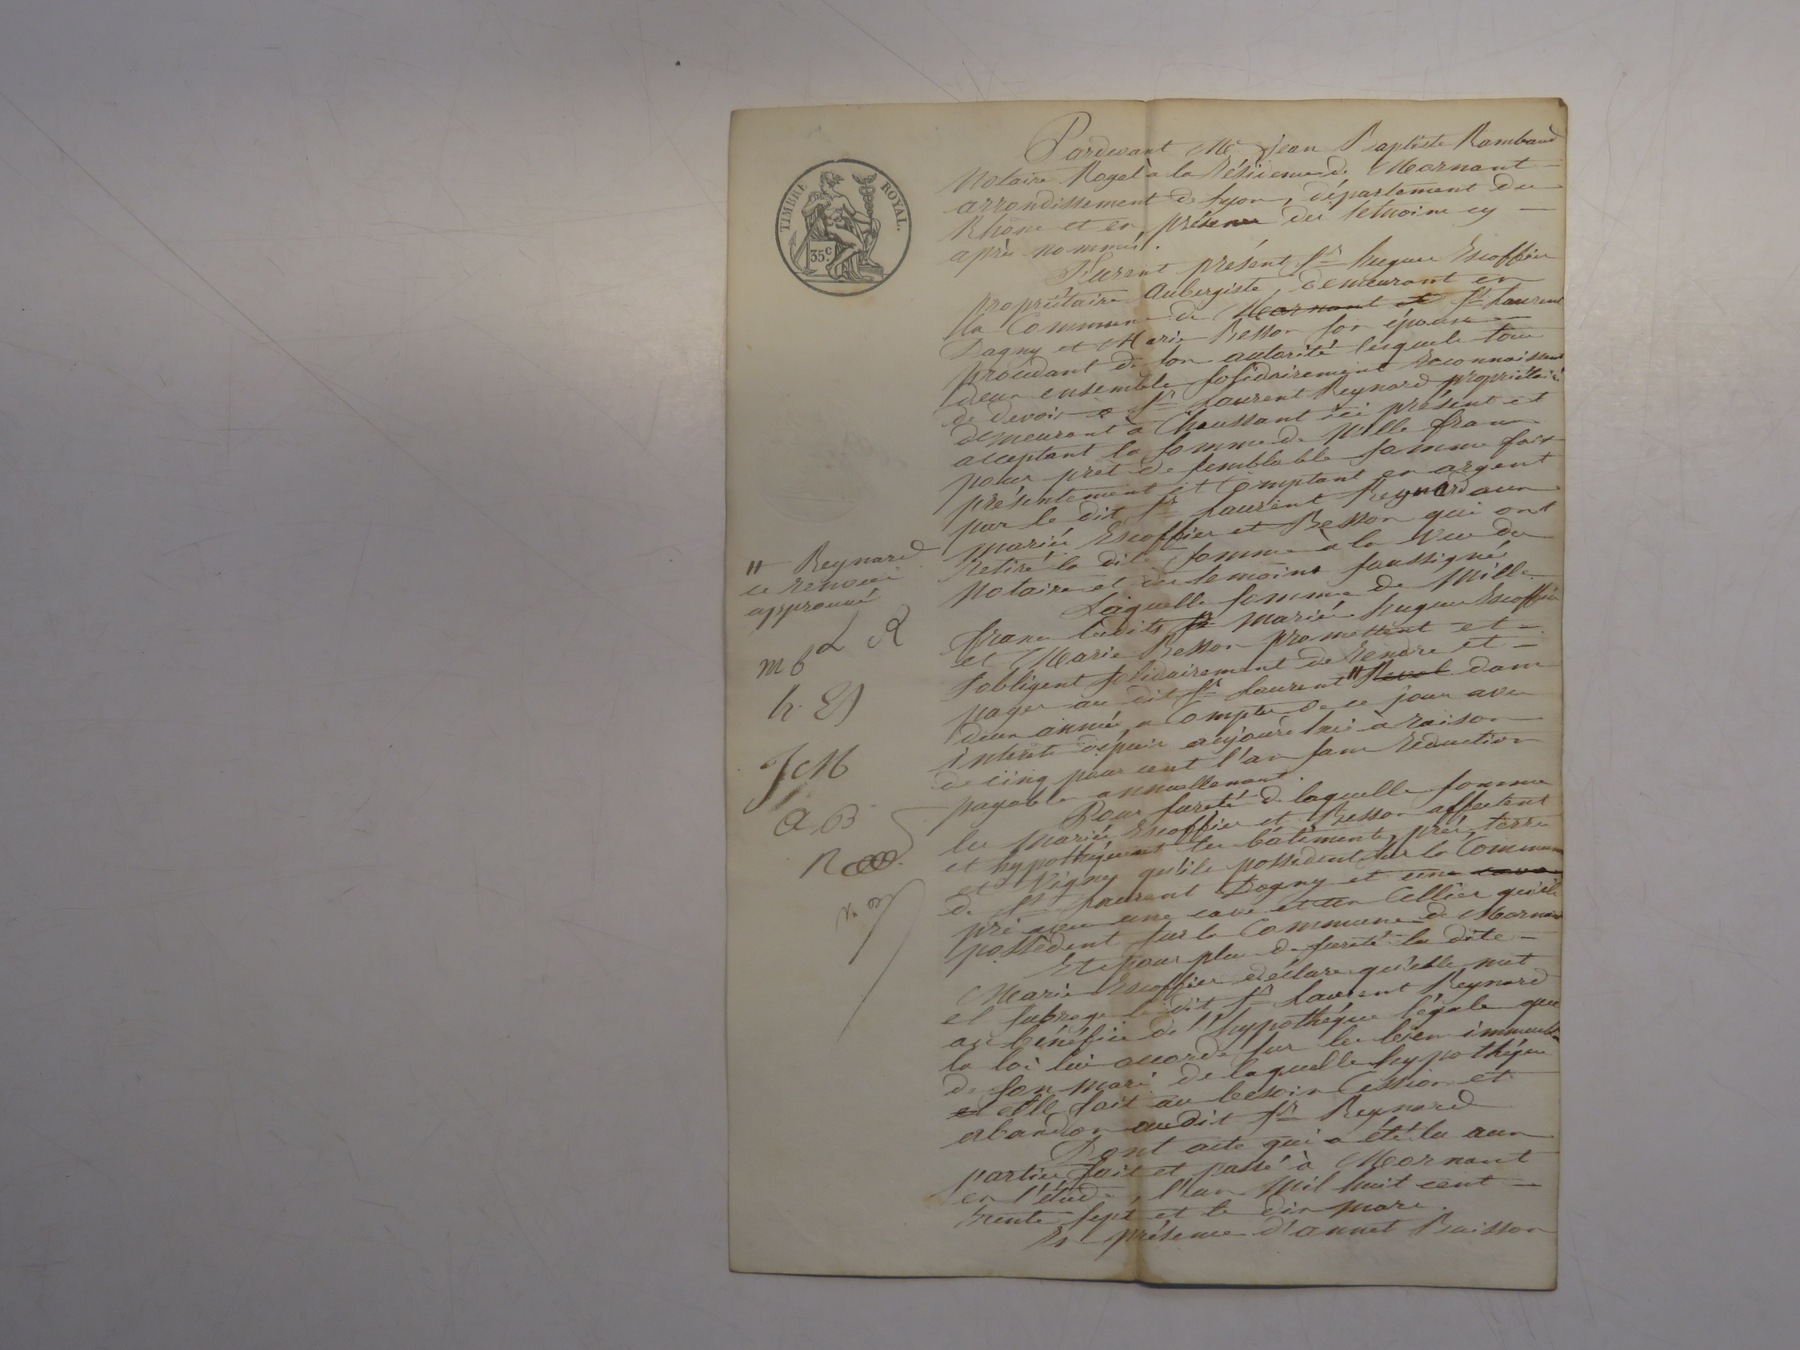 TIMBRE ROYAL.
35c.
Pardevant Me Jean Baptiste Rambaud
Notaire Royal à la Résidence de Mornant
arrondissement de Lyon, département du
Rhône et en présence des témoins cy
après nommés.
Furent présent Sr hugues Escoffier
propriétaire Aubergiste demeurant en
la Commune de Mornant et St Laurent
Dagny et Marie Besson son épouse
procédant de son autorité lesquels tous
deux ensemble solidairement Reconnaissent
de devoir a Sr Laurent Reynard propriétaire
demeurant à Chaussant ici présent et
acceptant la somme de Mille francs
pour prêt de semblable somme fait
présentement et Comptant en argent
par le dit Sr Laurent Reynard aux
mariés Escoffier et Besson qui ont
Retiré la dite somme à la vue du
Notaire et des temoins soussignés
Laquelle somme de Mille
francs lesdits Sr mariés hugues Escoffier
et Marie Besson promettent et
s'obligent solidairement de Rendre et
payer au dit Sr Laurent " dans
deux années a Compter de ce jour avec
intérêts depuis aujourd'hui a raison
de cinq pour cent l'an sans Réduction
payables annuellement.
Pour sureté de laquelle somme
les mariés Escoffier et Besson affectent
et hypothéquent les bâtiments, prés, terre
et Vignes qu'ils possèdent sur la Commune
de St Laurent Dagny et une cave
une cave et un Cellier qu'ils
possèdent sur la Commune de Mornant
Et pour plus de sureté la dite
Marie Escoffier déclare qu'elle met
et subroge le dit Sr Laurent Reynard
au bénéfice de l'hypothéque légale que
la loi lui accorde sur les biens immeubles
de son mari de laquelle hypothéque
et elle fait au besoin Cession et
abandon audit Sr Reynard
Dont acte qui a été lu aux
parties fait et passé à Mornant
en l'étude, l'an Mil huit cent
trente sept et le dix mars.
En présence d'annet Buisson
" Reynard
ce renvoi
approuvé
L R
m b
h. E
J M
a B
R